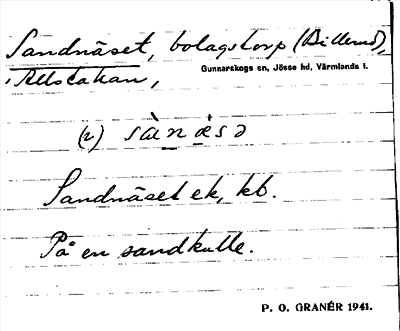 Sandnäset, bolagstorp (Billerud),
i Allstakan,
Gunnarskogs sn, Jösse hd, Värmlands l.
(v) sànæ̀sə
Sandnäset ek, kb.
På en sandkulle.
P. O. GRANÉR 1941.